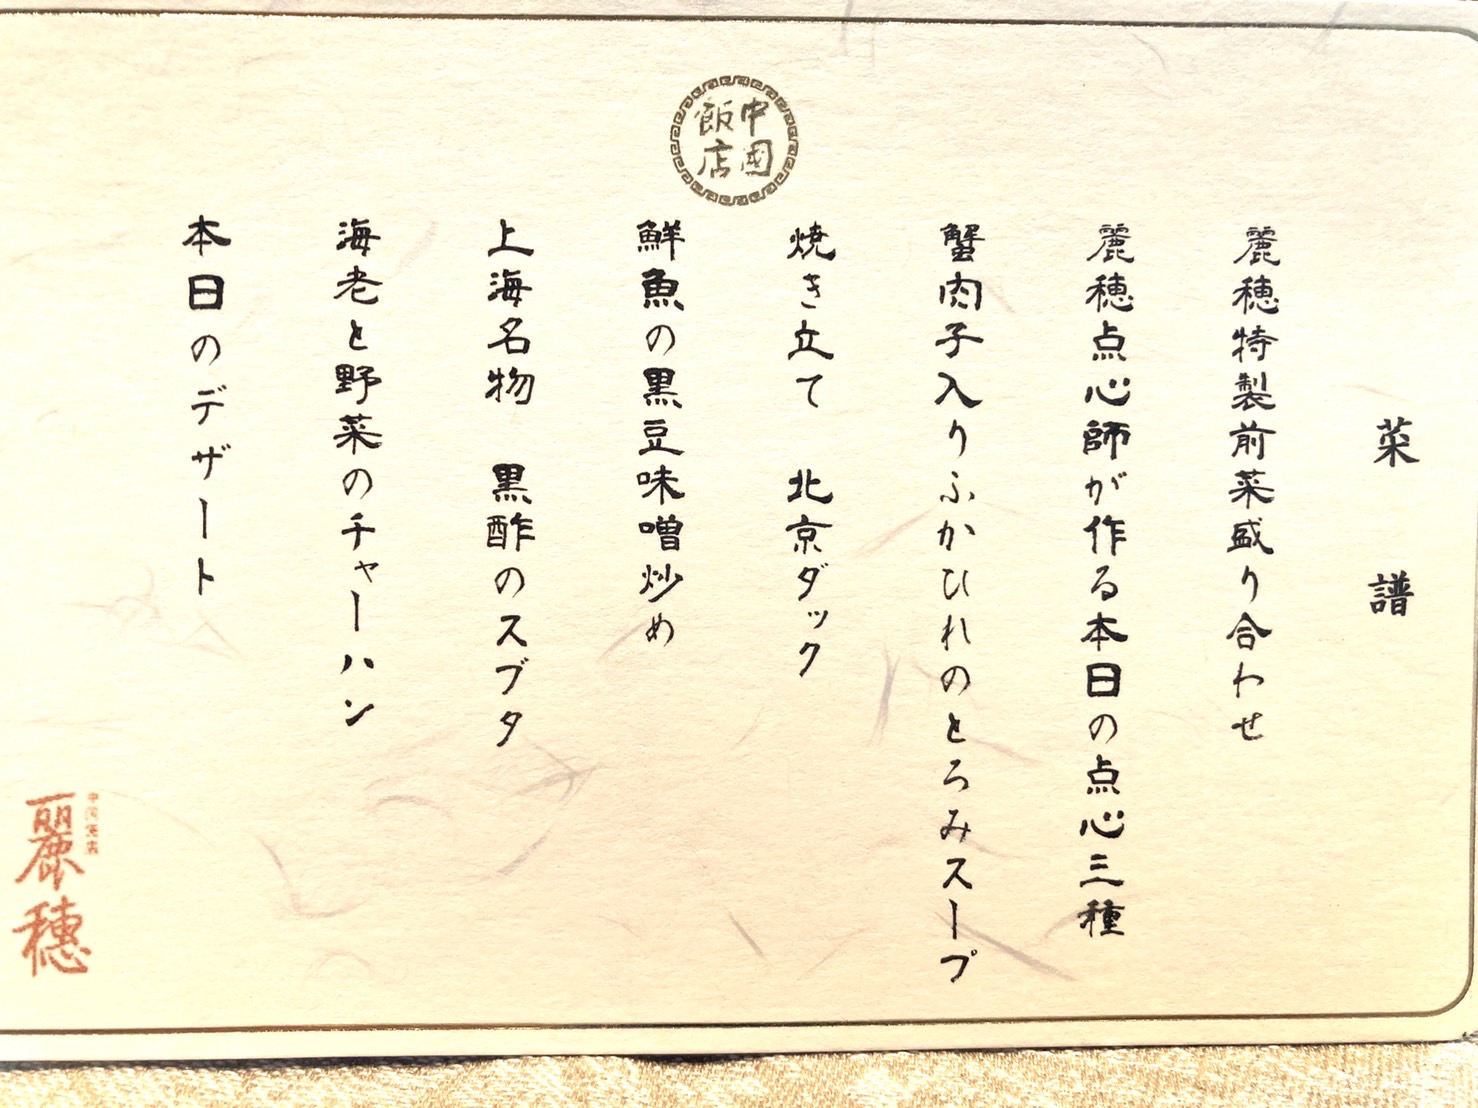 中國
飯店
菜譜
麗穂特製前菜盛り合わせ
麗穂点心師が作る本日の点心三種
蟹肉子入りふかひれのとろみスープ
焼き立て 北京ダック
鮮魚の黒豆味噌炒め
上海名物 黒酢のスブタ
海老と野菜のチャーハン
本日のデザート
中国飯店
麗穂